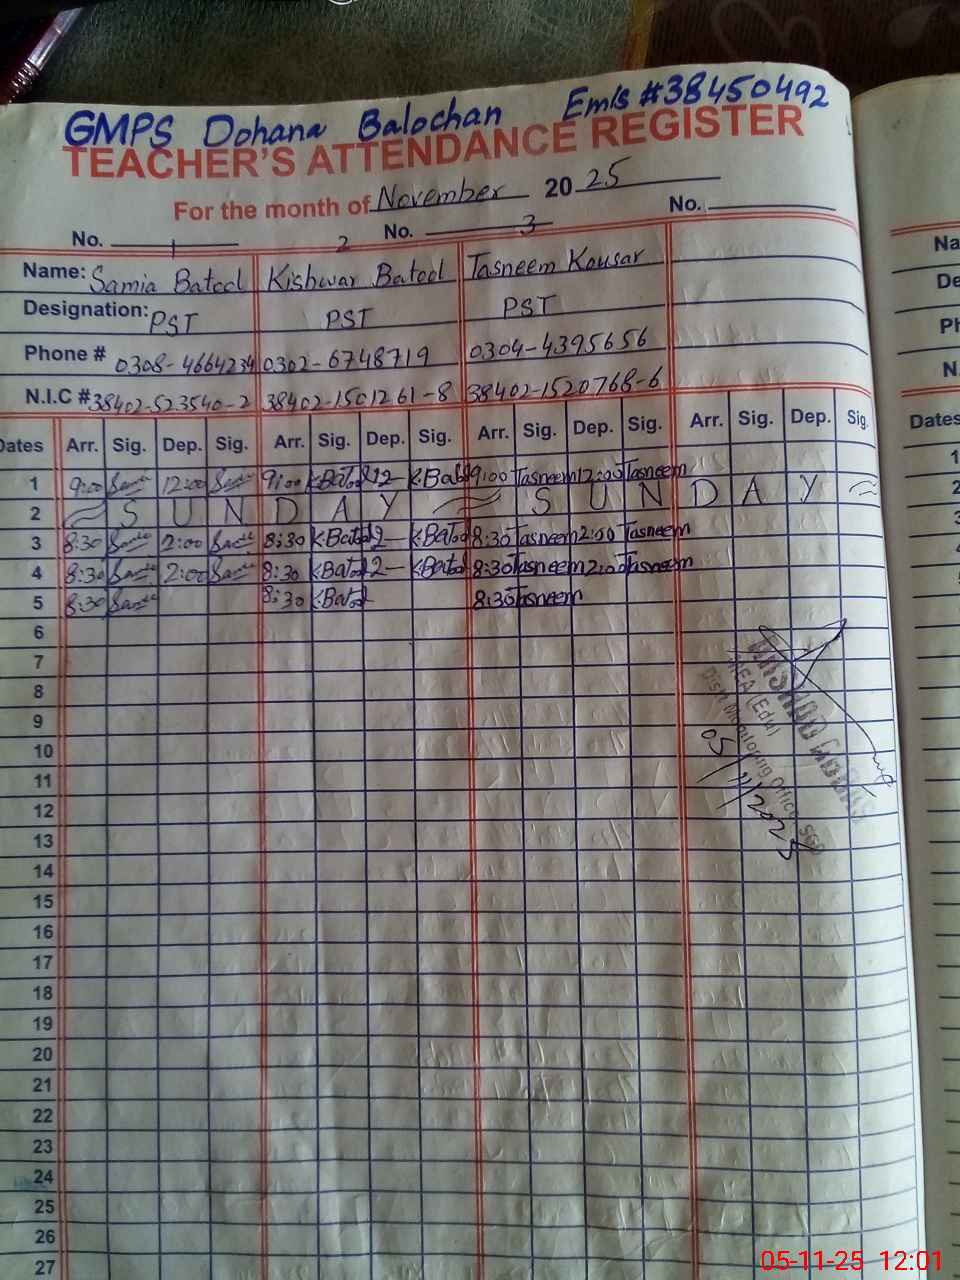 GMPS Dohana Balochan Emis #38450492
TEACHER'S ATTENDANCE REGISTER
For the month of November 2025
No. 1 2 No. 3 No.
Name: Samia Batool Kishwar Batool Tasneem Kousar
Designation: PST PST PST
Phone # 0308-4664234 0302-6748719 0304-4395656
N.I.C # 38402-523540-2 38402-1501261-8 38402-1520768-6
Dates Arr. Sig. Dep. Sig. Arr. Sig. Dep. Sig. Arr. Sig. Dep. Sig. Arr. Sig. Dep. Sig.
1 9:00 Samia 12:00 Samia 9:00 K.Batool 12- K.Batool 9:00 Tasneem 12:00 Tasneem
2 SUNDAY SUNDAY
3 8:30 Samia 2:00 Samia 8:30 K.Batool 2- K.Batool 8:30 Tasneem 2:00 Tasneem
4 8:30 Samia 2:00 Samia 8:30 K.Batool 2- K.Batool 8:30 Tasneem 2:00 Tasneem
5 8:30 Samia 8:30 K.Batool 8:30 Tasneem
6
7
8
9
10
11
12
13
14
15
16
17
18
19
20
21
22
23
24
25
26
27
MEA (Edu)
Distt Monitoring Office SGD
05/11/2025
Na
De
Ph
N.
Dates
1
2
3
05-11-25 12:01